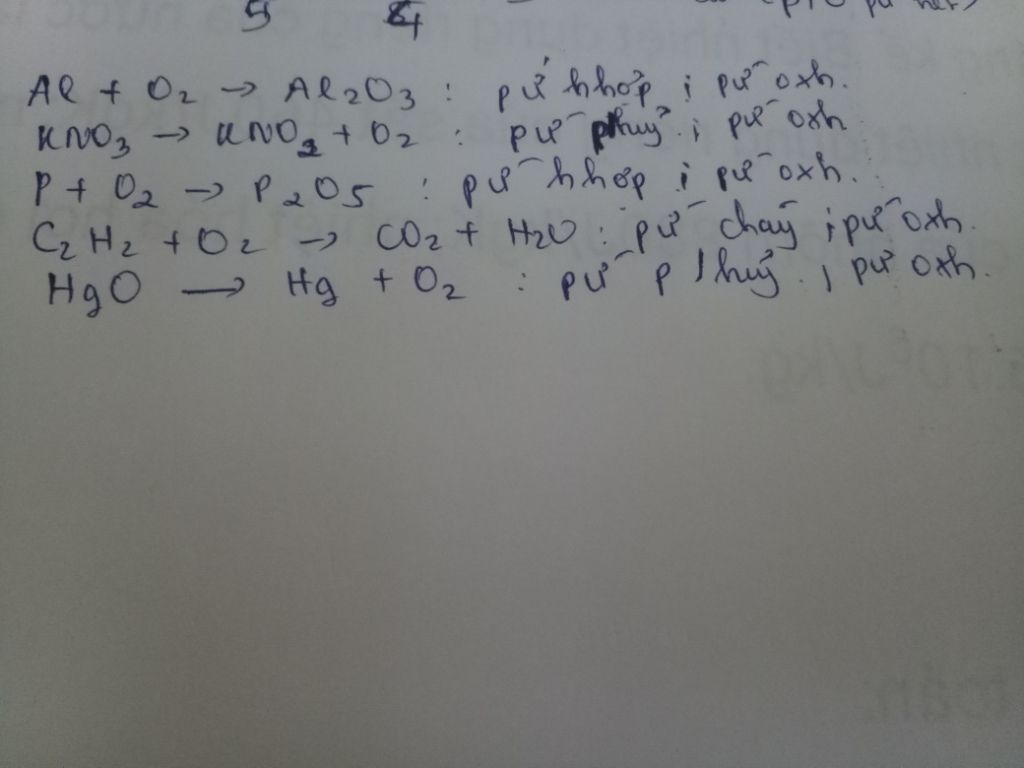 5 4
Al + O₂ → Al₂O₃ : pứ hhợp ; pứ oxh.
KNO₃ → KNO₂ + O₂ : pứ phuỷ ; pứ oxh
P + O₂ → P₂O₅ : pứ hhợp ; pứ oxh.
C₂H₂ + O₂ → CO₂ + H₂O : pứ cháy ; pứ oxh.
HgO → Hg + O₂ : pứ p/huỷ. ; pứ oxh.